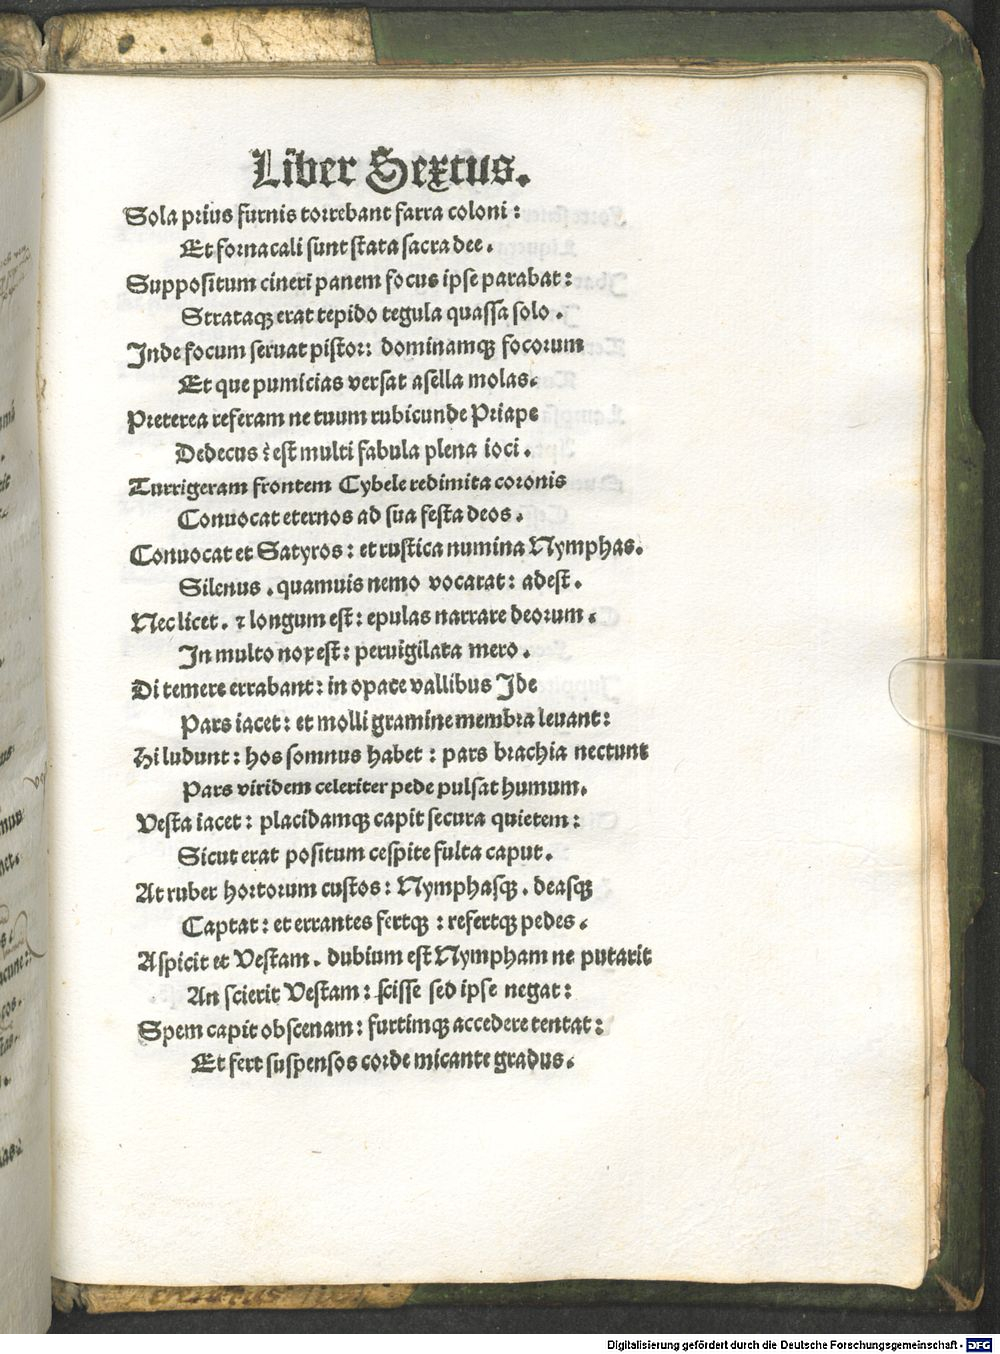 Liber Sextus.
Sola prius furnis torrebant farra coloni:
Et fornacali sunt stata sacra dee.
Suppositum cineri panem focus ipse parabat:
Strataqꝫ erat tepido tegula quassa solo.
Inde focum seruat pistor: dominamqꝫ focorum
Et que pumicias versat asella molas.
Preterea referam ne tuum rubicunde Priape
Dedecus: est multi fabula plena ioci.
Turrigeram frontem Cybele redimita coronis
Conuocat eternos ad sua festa deos.
Conuocat et Satyros: et rustica numina Nymphas.
Silenus. quamuis nemo vocarat: adest.
Nec licet. ⁊ longum est: epulas narrare deorum.
In multo nox est: peruigilata mero.
Di temere errabant: in opace vallibus Ide
Pars iacet: et molli gramine membra leuant:
Hi ludunt: hos somnus habet: pars brachia nectunt
Pars viridem celeriter pede pulsat humum.
Vesta iacet: placidamqꝫ capit secura quietem:
Sicut erat positum cespite fulta caput.
At ruber hortorum custos: Nymphasqꝫ. deasqꝫ
Captat: et errantes fertqꝫ: refertqꝫ pedes.
Aspicit et Vestam. dubium est Nympham ne putarit
An scierit Vestam: scisse sed ipse negat:
Spem capit obscenam: furtimqꝫ accedere tentat:
Et fert suspensos corde micante gradus.
Digitalisierung gefördert durch die Deutsche Forschungsgemeinschaft - DFG